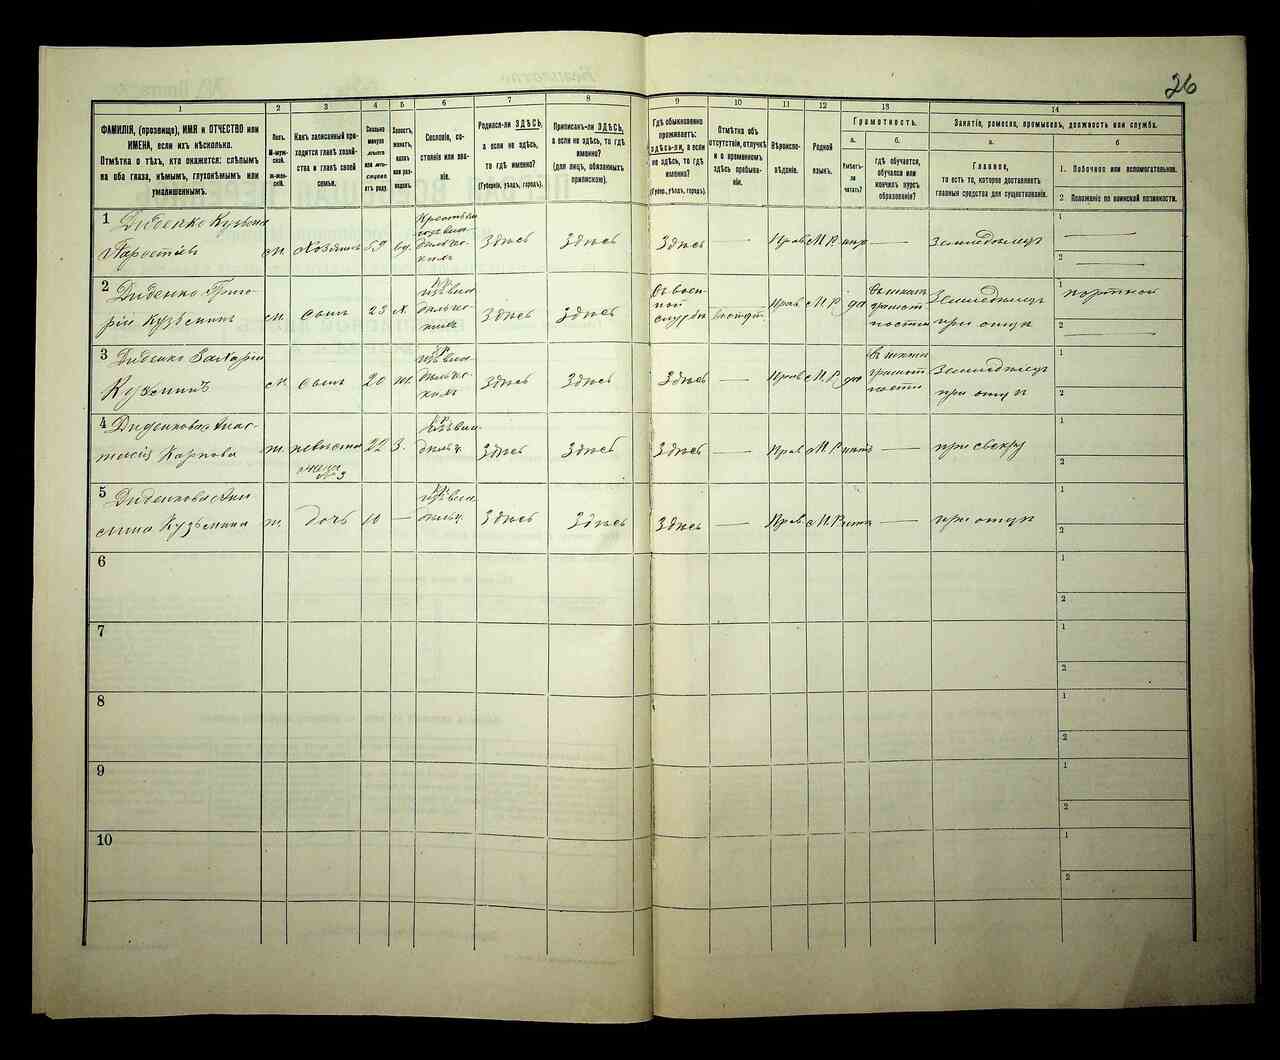 26
1
2
3
4
5
6
7
8
9
10
11
12
13
14
ФАМИЛІЯ, (прозвище), ИМЯ и ОТЧЕСТВО или
ИМЕНА, если ихъ нѣсколько.
Отмѣтка о тѣхъ, кто окажется: слѣпымъ
на оба глаза, нѣмымъ, глухонѣмымъ или
умалишеннымъ.
Полъ.
М-муж-
ской.
ж-жен-
скій.
Какъ записанный при-
ходится главѣ хозяй-
ства и главѣ своей
семьи.
Сколько
минуло
лѣтъ
или мѣ-
сяцевъ
отъ роду.
Холостъ,
женатъ,
вдовъ
или раз-
веденъ.
Сословіе, со-
стояніе или зва-
ніе.
Родился-ли ЗДѢСЬ,
а если не здѣсь,
то гдѣ именно?
(Губернія, уѣздъ, городъ).
Приписанъ-ли ЗДѢСЬ,
а если не здѣсь, то гдѣ
именно?
(для лицъ, обязанныхъ
припискою).
Гдѣ обыкновенно
проживаетъ:
здѣсь-ли, а если
не здѣсь, то гдѣ
именно?
(Губерн., уѣздъ, городъ).
Отмѣтка объ
отсутствіи, отлучкѣ
и о временномъ
здѣсь пребыва-
ніи.
Вѣроиспо-
вѣданіе.
Родной
языкъ.
Грамотность.
а.
Умѣетъ-
ли
читать?
б.
гдѣ обучается,
обучался или
кончилъ курсъ
образованія?
Занятіе, ремесло, промыселъ, должность или служба.
а.
Главное,
то есть то, которое доставляетъ
главныя средства для существованія.
б
1. Побочное или вспомогательное.
2 Положеніе по воинской повинности.
1 Диденко Кузьма
м. Хозяинъ 59 вд.
Здѣсь Здѣсь Здѣсь — Прав. М.Р. — Земледѣлецъ
1 —
2 —
2 Диденко Григо-
рій Кузьминъ м. сынъ 23 х.
Здѣсь Здѣсь
Въ воен-
ной
службѣ
Прав. М.Р. да
Въ школѣ
грамот
ности
Земледѣлецъ
при отцѣ
1 портной
2 —
3 Диденко Захарій
Кузьминъ м. сынъ 20 ж.
Здѣсь Здѣсь Здѣсь — Прав. М.Р. да
Въ школѣ
грамот
ности
Земледѣлецъ
при отцѣ
1
2
4 Диденкова Анас-
тасія Карпова ж. невѣстка 22 З.
жена
№ 3
Здѣсь Здѣсь Здѣсь — Прав. М.Р. нѣтъ — при свекру
1
2
5 Диденкова
Кузьмина ж. дочь 10 —
Здѣсь Здѣсь Здѣсь — Прав. М.Р. нѣтъ — при отцѣ
1
2
6
1
2
7
1
2
8
1
2
9
1
2
10
1
2